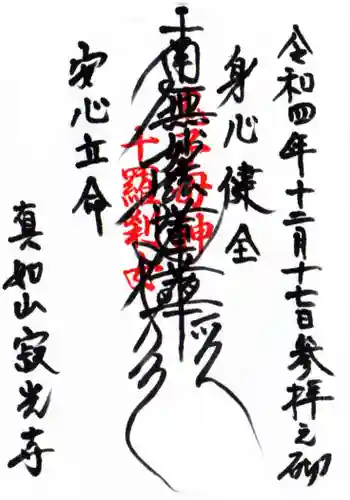 令和四年十二月十七日参拝之砌
身心健全
南無妙法蓮華経
鬼子母神
十羅刹女
安心立命
真如山寂光寺